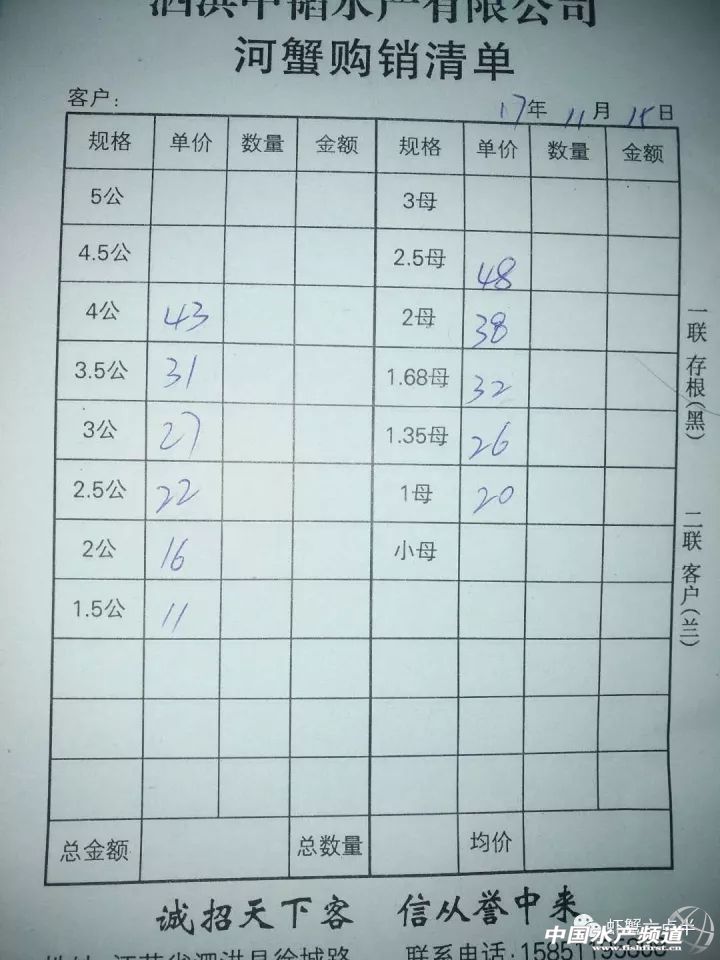 泗洪中储水产有限公司
河蟹购销清单
客户: 17年 11月 15日
规格 单价 数量 金额 规格 单价 数量 金额
5公 3母
4.5公 2.5母 48
4公 43 2母 38
3.5公 31 1.68母 32
3公 27 1.35母 26
2.5公 22 1母 20
2公 16 小母
1.5公 11
总金额 总数量 均价
诚招天下客 信从誉中来
江苏省泗洪县徐城路 联系电话:
一联 存根(黑) 二联 客户(兰)
虾蟹六点半
中国水产频道
www.fishfirst.cn